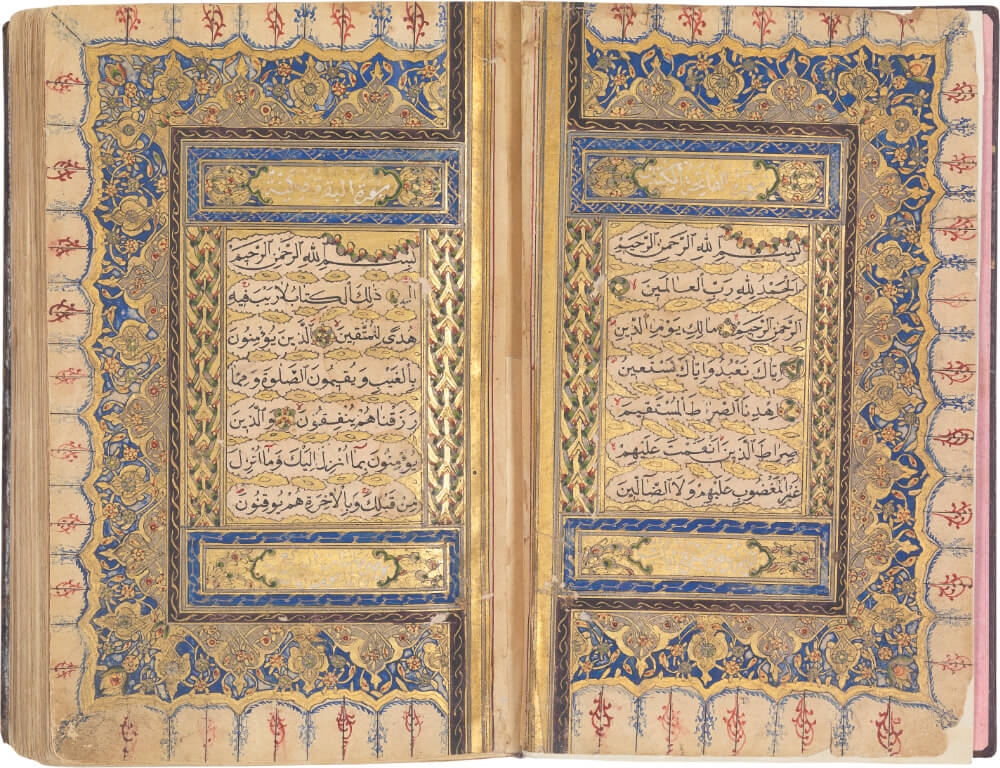 سورة الفاتحة مكية
بِسْمِ اللهِ الرَّحْمٰنِ الرَّحِيْمِ
اَلْحَمْدُ لِلّٰهِ رَبِّ الْعَالَمِيْنَ
اَلرَّحْمٰنِ الرَّحِيْمِ مَالِكِ يَوْمِ الدِّيْنِ
اِيَّاكَ نَعْبُدُ وَاِيَّاكَ نَسْتَعِيْنُ
اِهْدِنَا الصِّرَاطَ الْمُسْتَقِيْمَ
صِرَاطَ الَّذِيْنَ اَنْعَمْتَ عَلَيْهِمْ
غَيْرِ الْمَغْضُوْبِ عَلَيْهِمْ وَلَا الضَّالِّيْنَ
سورة البقرة مدنية
بِسْمِ اللهِ الرَّحْمٰنِ الرَّحِيْمِ
الٓمٓ ذٰلِكَ الْكِتَابُ لَا رَيْبَ فِيْهِ
هُدًى لِلْمُتَّقِيْنَ اَلَّذِيْنَ يُؤْمِنُوْنَ
بِالْغَيْبِ وَيُقِيْمُوْنَ الصَّلٰوةَ وَمِمَّا
رَزَقْنَاهُمْ يُنْفِقُوْنَ وَالَّذِيْنَ
يُؤْمِنُوْنَ بِمَا اُنْزِلَ اِلَيْكَ وَمَا اُنْزِلَ
مِنْ قَبْلِكَ وَبِالْاٰخِرَةِ هُمْ يُوْقِنُوْنَ